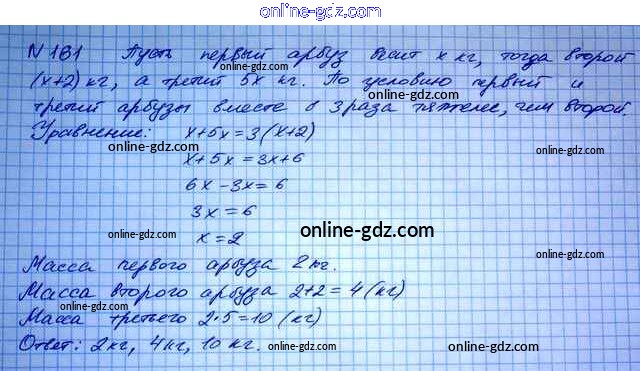 online-gdz.com
N 161 Пусть первый арбуз весит x кг, тогда второй
(x+2) кг, а третий 5x кг. По условию первый и
online-gdz.com
третий арбузы вместе в 3 раза тяжелее, чем второй.
Уравнение: x+5x=3(x+2)
online-gdz.com
online-gdz.com
x+5x=3x+6
6x-3x=6
3x=6
online-gdz.com
x=2
online-gdz.com
Масса первого арбуза 2 кг.
Масса второго арбуза 2+2=4 (кг)
online-gdz.com
Масса третьего 2·5=10 (кг)
Ответ: 2 кг, 4 кг, 10 кг.
online-gdz.com
online-gdz.com